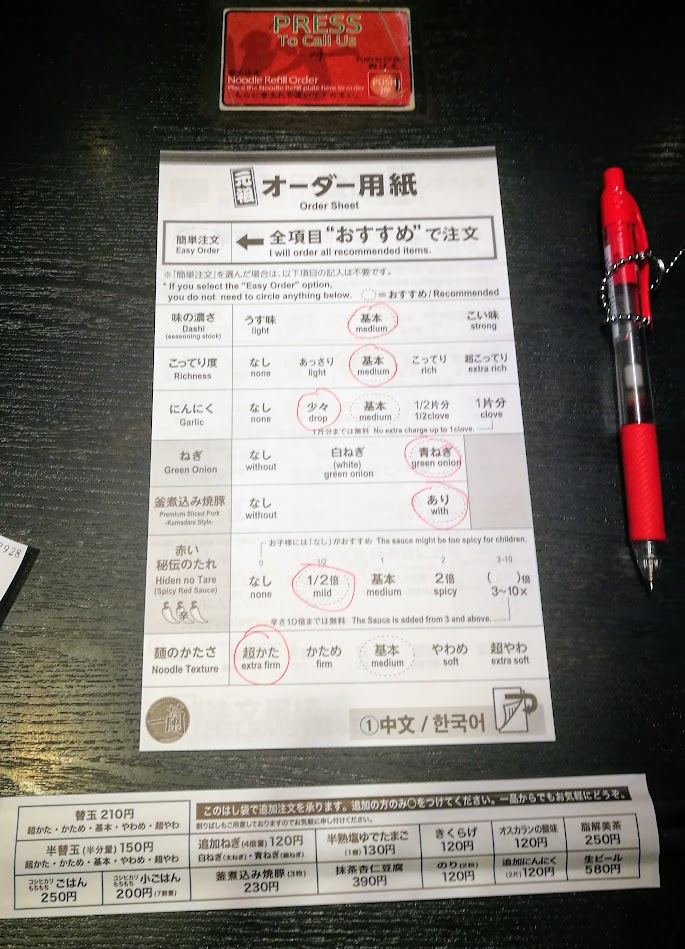 PRESS
To Call Us
Noodle Refill Order
Place the Noodle Refill plate here to order
PUSH
元祖 オーダー用紙
Order Sheet
簡単注文 ← 全項目“おすすめ”で注文
Easy Order I will order all recommended items.
※「簡単注文」を選んだ場合は、以下項目の記入は不要です。
* If you select the "Easy Order" option,
you do not need to circle anything below. =おすすめ/Recommended
味の濃さ うす味 基本 こい味
Dashi light medium strong
(seasoning stock)
こってり度 なし あっさり 基本 こってり 超こってり
Richness none light medium rich extra rich
にんにく なし 少々 基本 1/2片分 1片分
Garlic none drop medium 1/2clove clove
1片分までは無料 No extra charge up to 1clove.
ねぎ なし 白ねぎ 青ねぎ
Green Onion without (white) green onion
green onion
釜煮込み焼豚 なし あり
Premium Sliced Pork without with
-Kamadare Style-
お子様には「なし」がおすすめ The sauce might be too spicy for children.
赤い 0 1/2 1 2 3-10
秘伝のたれ なし 1/2倍 基本 2倍 ( )倍
Hiden no Tare none mild medium spicy 3~10×
(Spicy Red Sauce)
辛
辛さ10倍までは無料 The Sauce is added from 3 and above.
麺のかたさ 超かた かため 基本 やわめ 超やわ
Noodle Texture extra firm firm medium soft extra soft
一蘭
①中文 / 한국어
このはし袋で追加注文を承ります。追加の方のみ○をつけてください。一品からでもお気軽にどうぞ。
割りばしもご用意しておりますのでお気軽に申し付けください。
替玉 210円
超かた・かため・基本・やわめ・超やわ
半替玉(半分量)150円
超かた・かため・基本・やわめ・超やわ
コシヒカリ もちもち ごはん 250円
コシヒカリ もちもち 小ごはん 200円(7割量)
追加ねぎ(4倍量)120円
白ねぎ(太ねぎ)・青ねぎ(細ねぎ)
半熟塩ゆでたまご
(1個)130円
きくらげ
120円
オスカランの酸味
120円
脂解美茶
250円
釜煮込み焼豚(3枚)
230円
抹茶杏仁豆腐
390円
のり(2枚)
120円
追加にんにく
(2片)120円
生ビール
580円